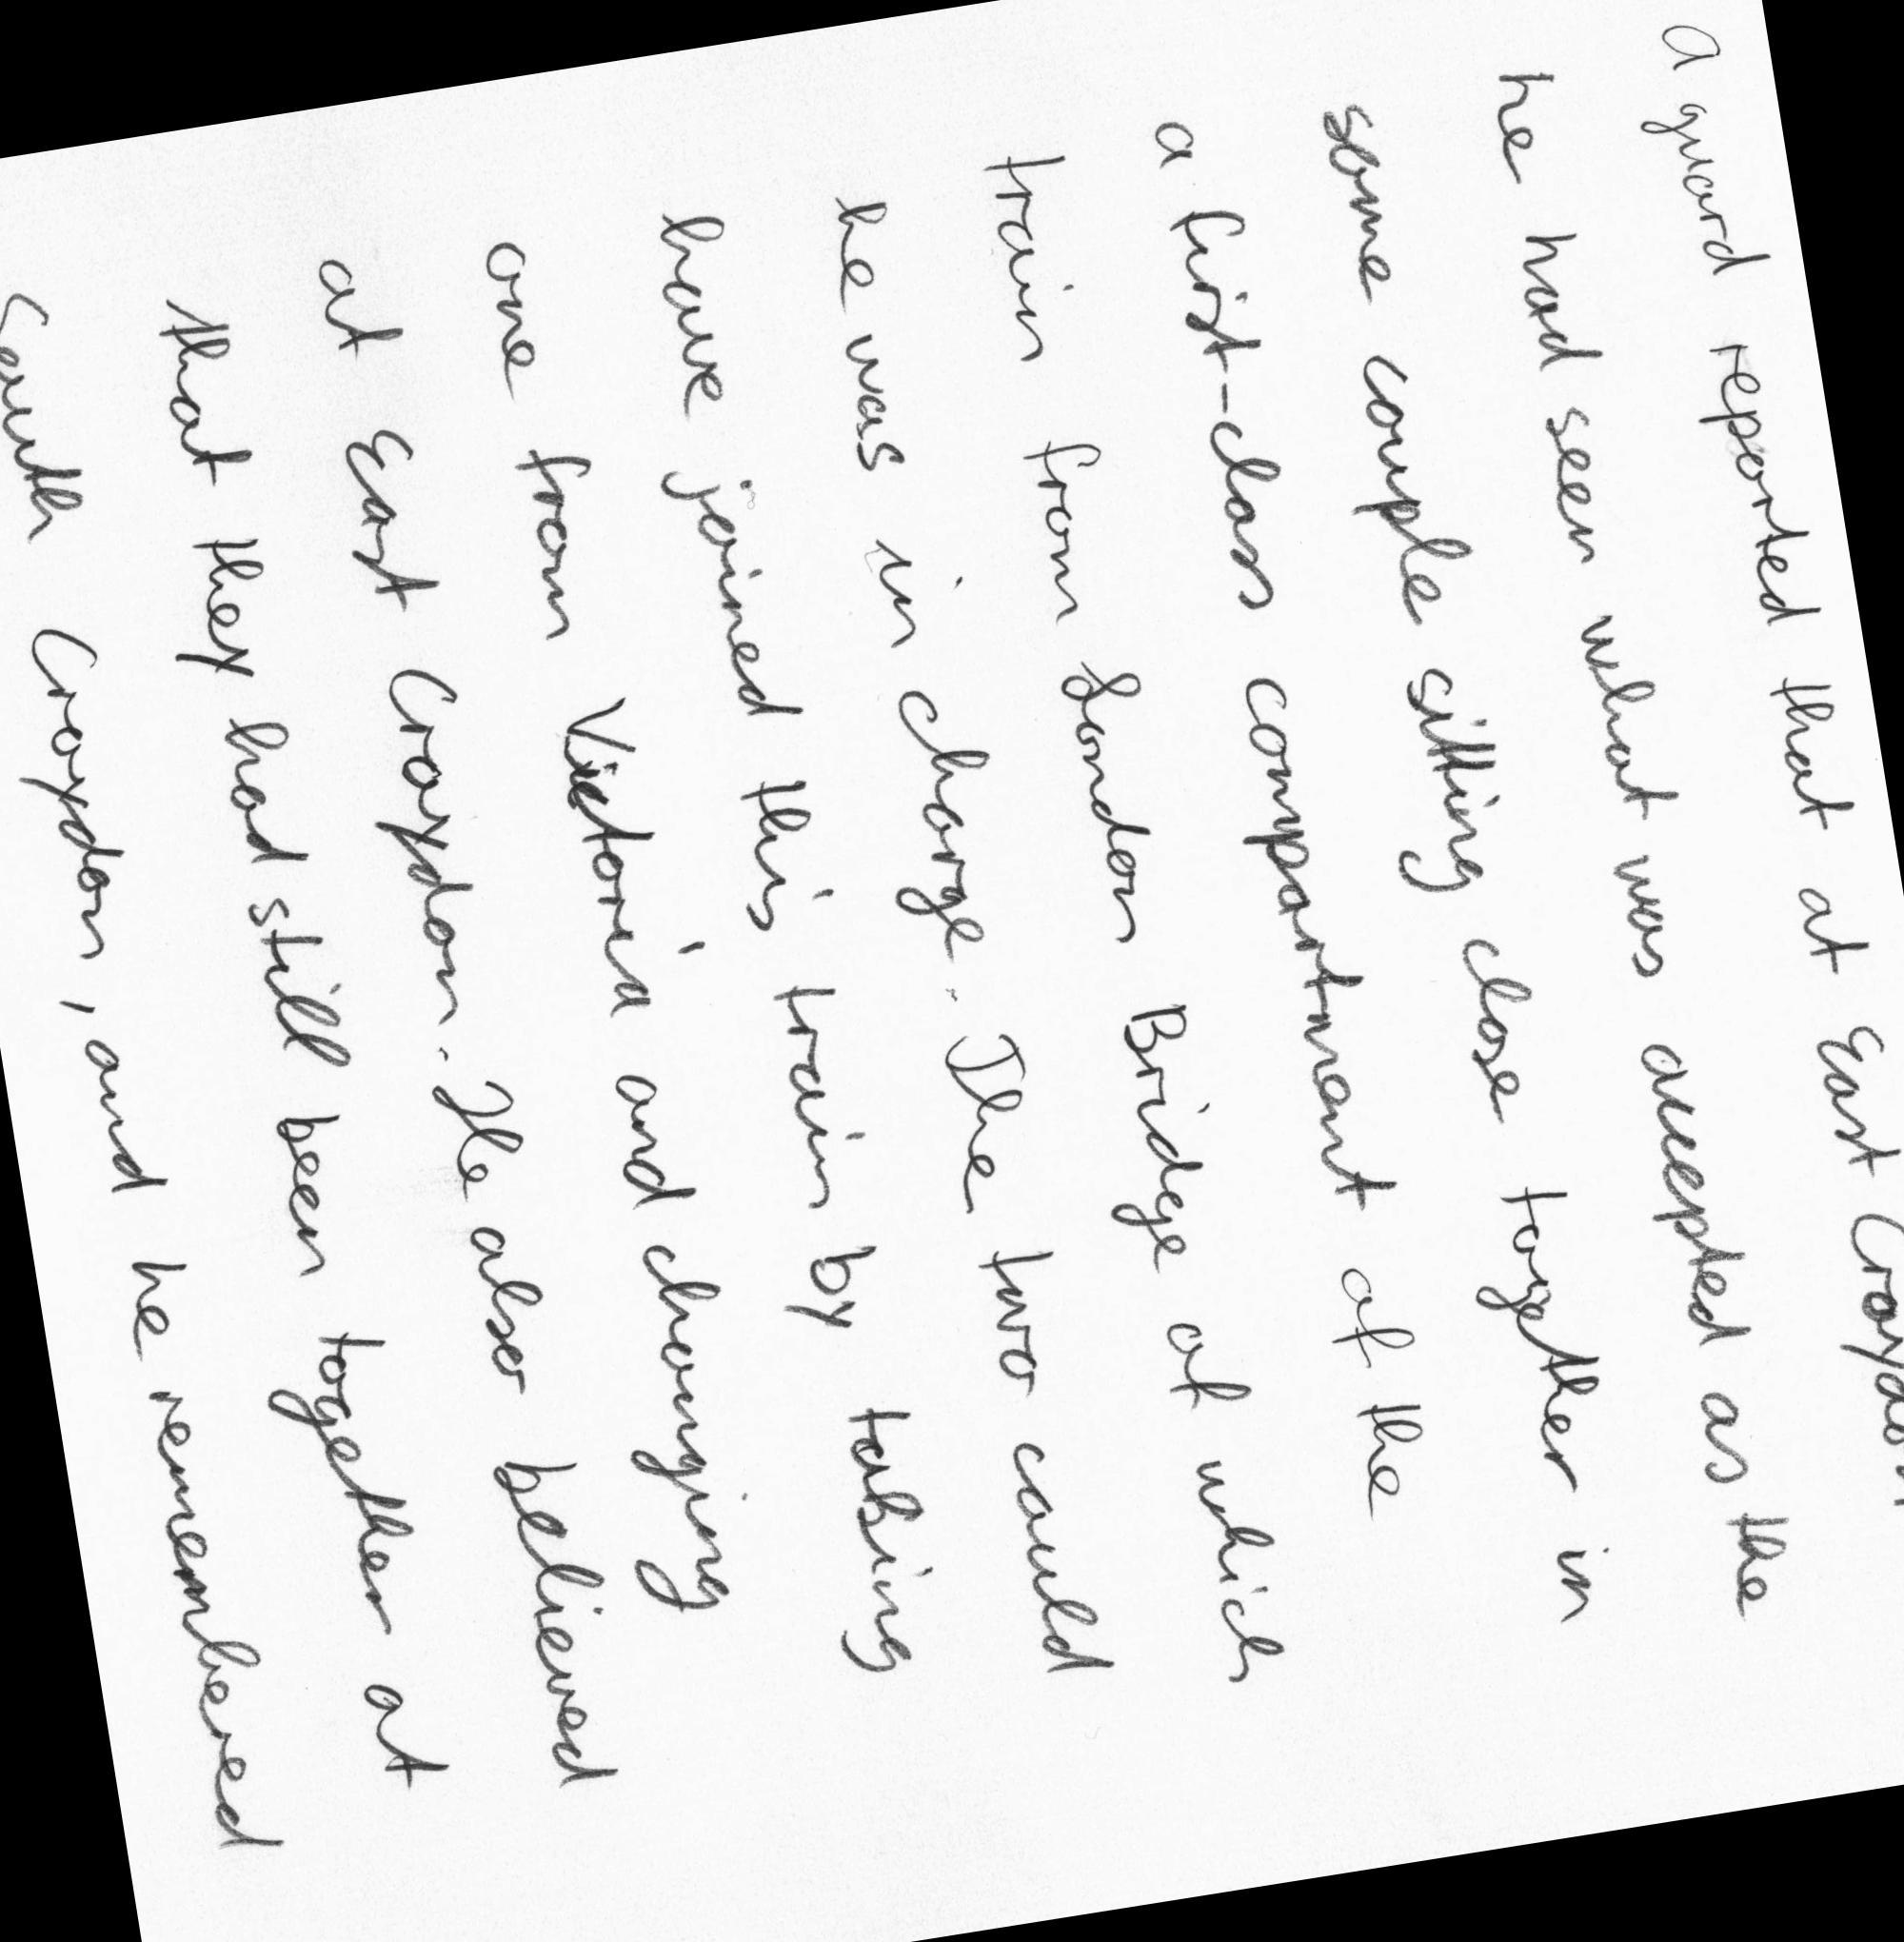 a guard reported that at East Croydon
he had seen what was accepted as the
some couple sitting close together in
a first-class compartment of the
train from London Bridge of which
he was in charge. The two could
have joined this train by taking
one from Victoria and changing
at East Croydon. He also believed
that they had still been together at
South Croydon, and he remembered